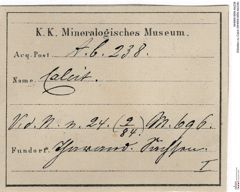 K. K. Mineralogisches Museum.
Acq. Post A. b. 238.
Name: Calcit.
V. d. N. n. 24. (2/84.) M. 696.
Fundort: Tharand. Sachsen.
I